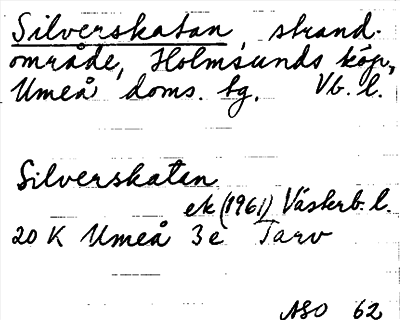 Silverskatan, strand-
område, Holmsunds köp.,
Umeå doms. tg. Vb. l.
Silverskatan
ek (1961) Västerb. l.
20 K Umeå 3e Tarv
ASO 62